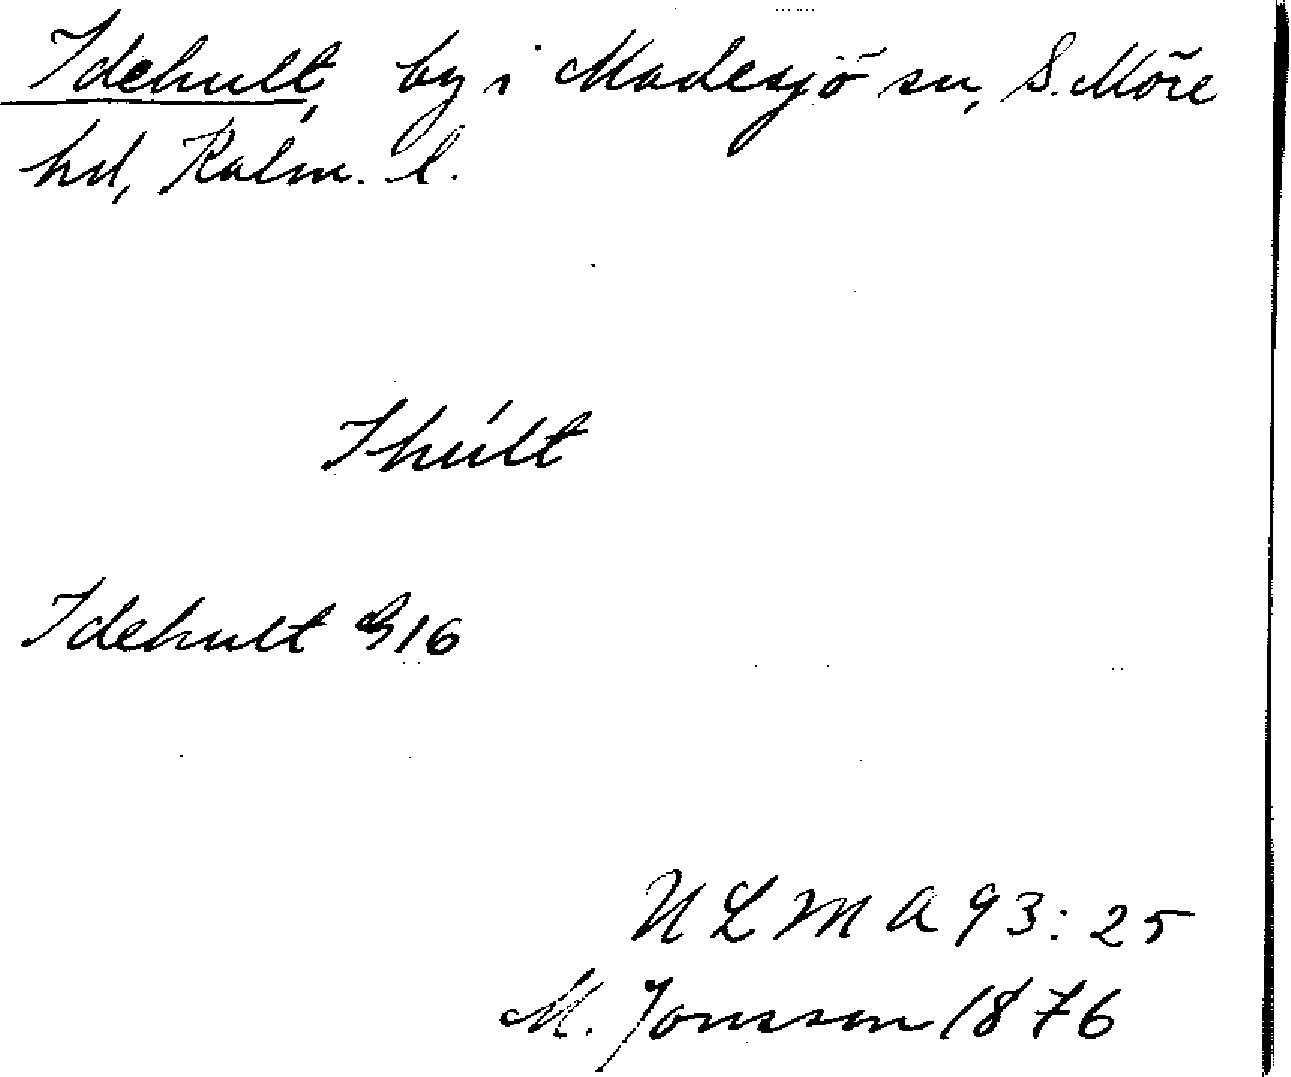 Idehult, by i Madesjö sn, S. Möre
hd, Kalm. l.
Ihúlt
Idehult G16
ULMA 93:25
M. Jonsson 1876